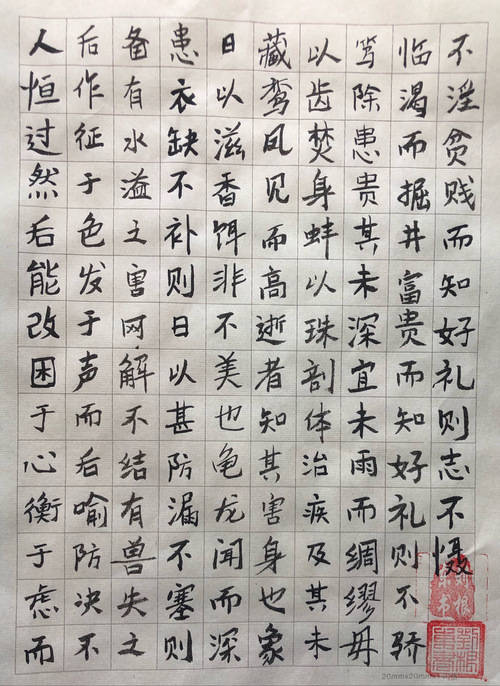 人恒过然后能改困于心衡于虑而
后作征于色发于声而后喻防决不
备有水溢之害网解不结有兽失之
患衣缺不补则日以甚防漏不塞则
日以滋香饵非不美也龟龙闻而深
藏鸾凤见而高逝者知其害身也象
以齿焚身蚌以珠剖体治疾及其未
笃除患贵其未深宜未雨而绸缪毋
临渴而掘井富贵而知好礼则不骄
不淫贫贱而知好礼则志不慑